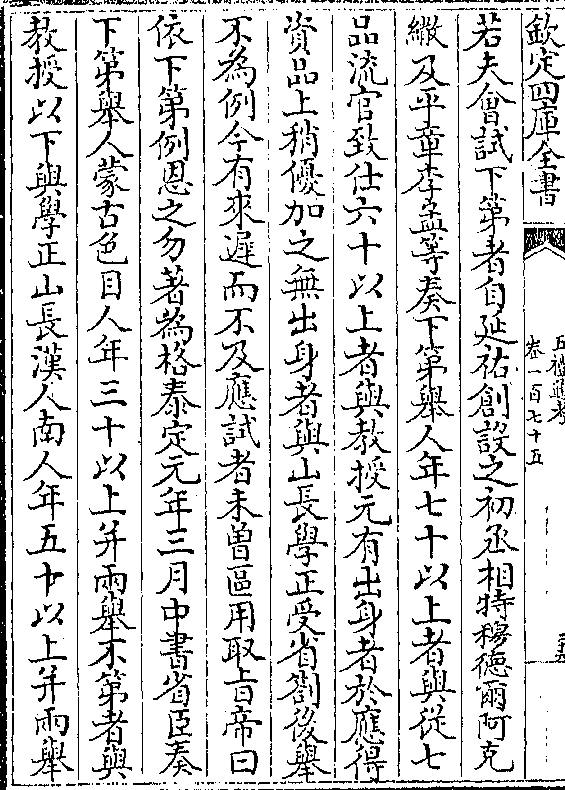 欽定四庫全書
五禮通考
卷一百七十五
若夫會試下第者自延祐創設之初丞相特穆徳爾阿克
繖及平章李孟等奏下第舉人年七十以上者與從七
品流官致仕六十以上者與教授元有出身者於應得
資品上稍優加之無出身者與山長學正受省劄後舉
不為例今有來遲而不及應試者未曽區用取㫖帝曰
依下第例恩之勿著為格泰定元年三月中書省臣奏
下第舉人蒙古色目人年三十以上并兩舉不第者與
教授以下與學正山長漢人南人年五十以上并兩舉